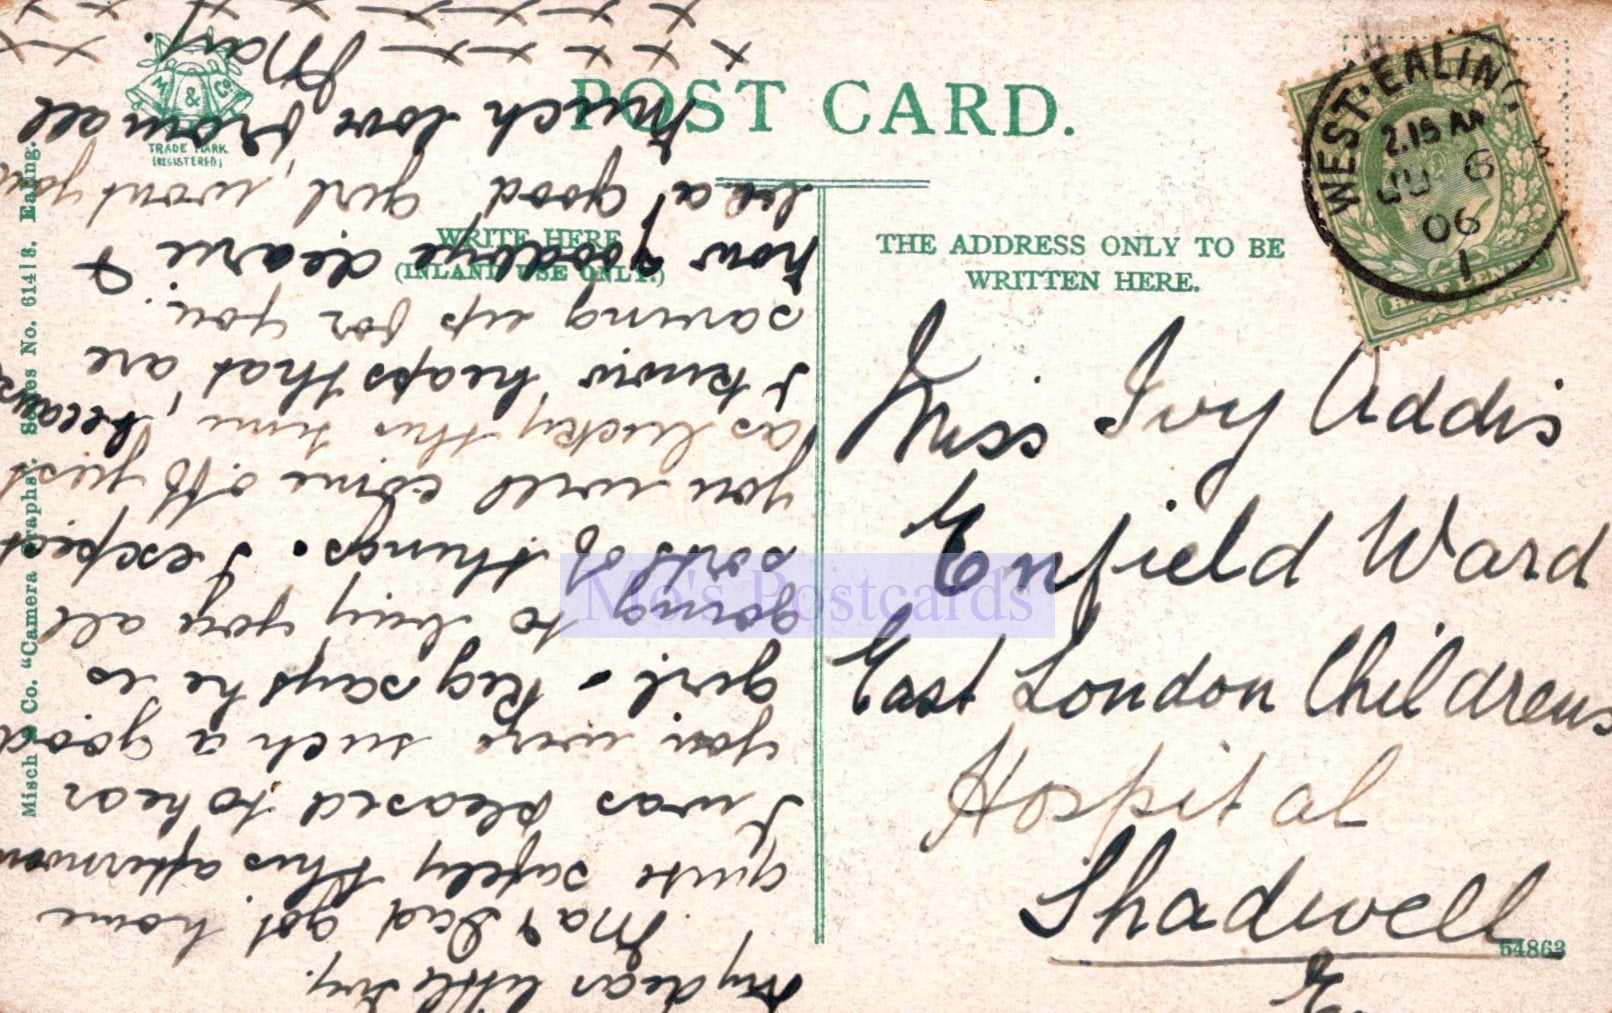 POST CARD.
M & Co
TRADE MARK
(REGISTERED)
WRITE HERE
(INLAND USE ONLY.)
THE ADDRESS ONLY TO BE
WRITTEN HERE.
WEST·EALING
2.15 AM
JU 6
06
1
Miss Ivy Addis
Enfield Ward
East London Childrens
Hospital
Shadwell
E
54863
Misch & Co. "Camera Graphs". Series No. 614/3. Ealing.
My dear little Ivy.
Ma & Dad got home
quite safely this afternoon
I was pleased to hear
you were such a good
girl - Reg says he is
going to buy you all
sorts of things. I expect
you will come off just
as lucky this time, because
I know heaps that are
saving up for you.
now goodbye dearie &
be a good girl, wont you
Much love from all
May.
x x x x x x
x x x x x x
Mo's Postcards